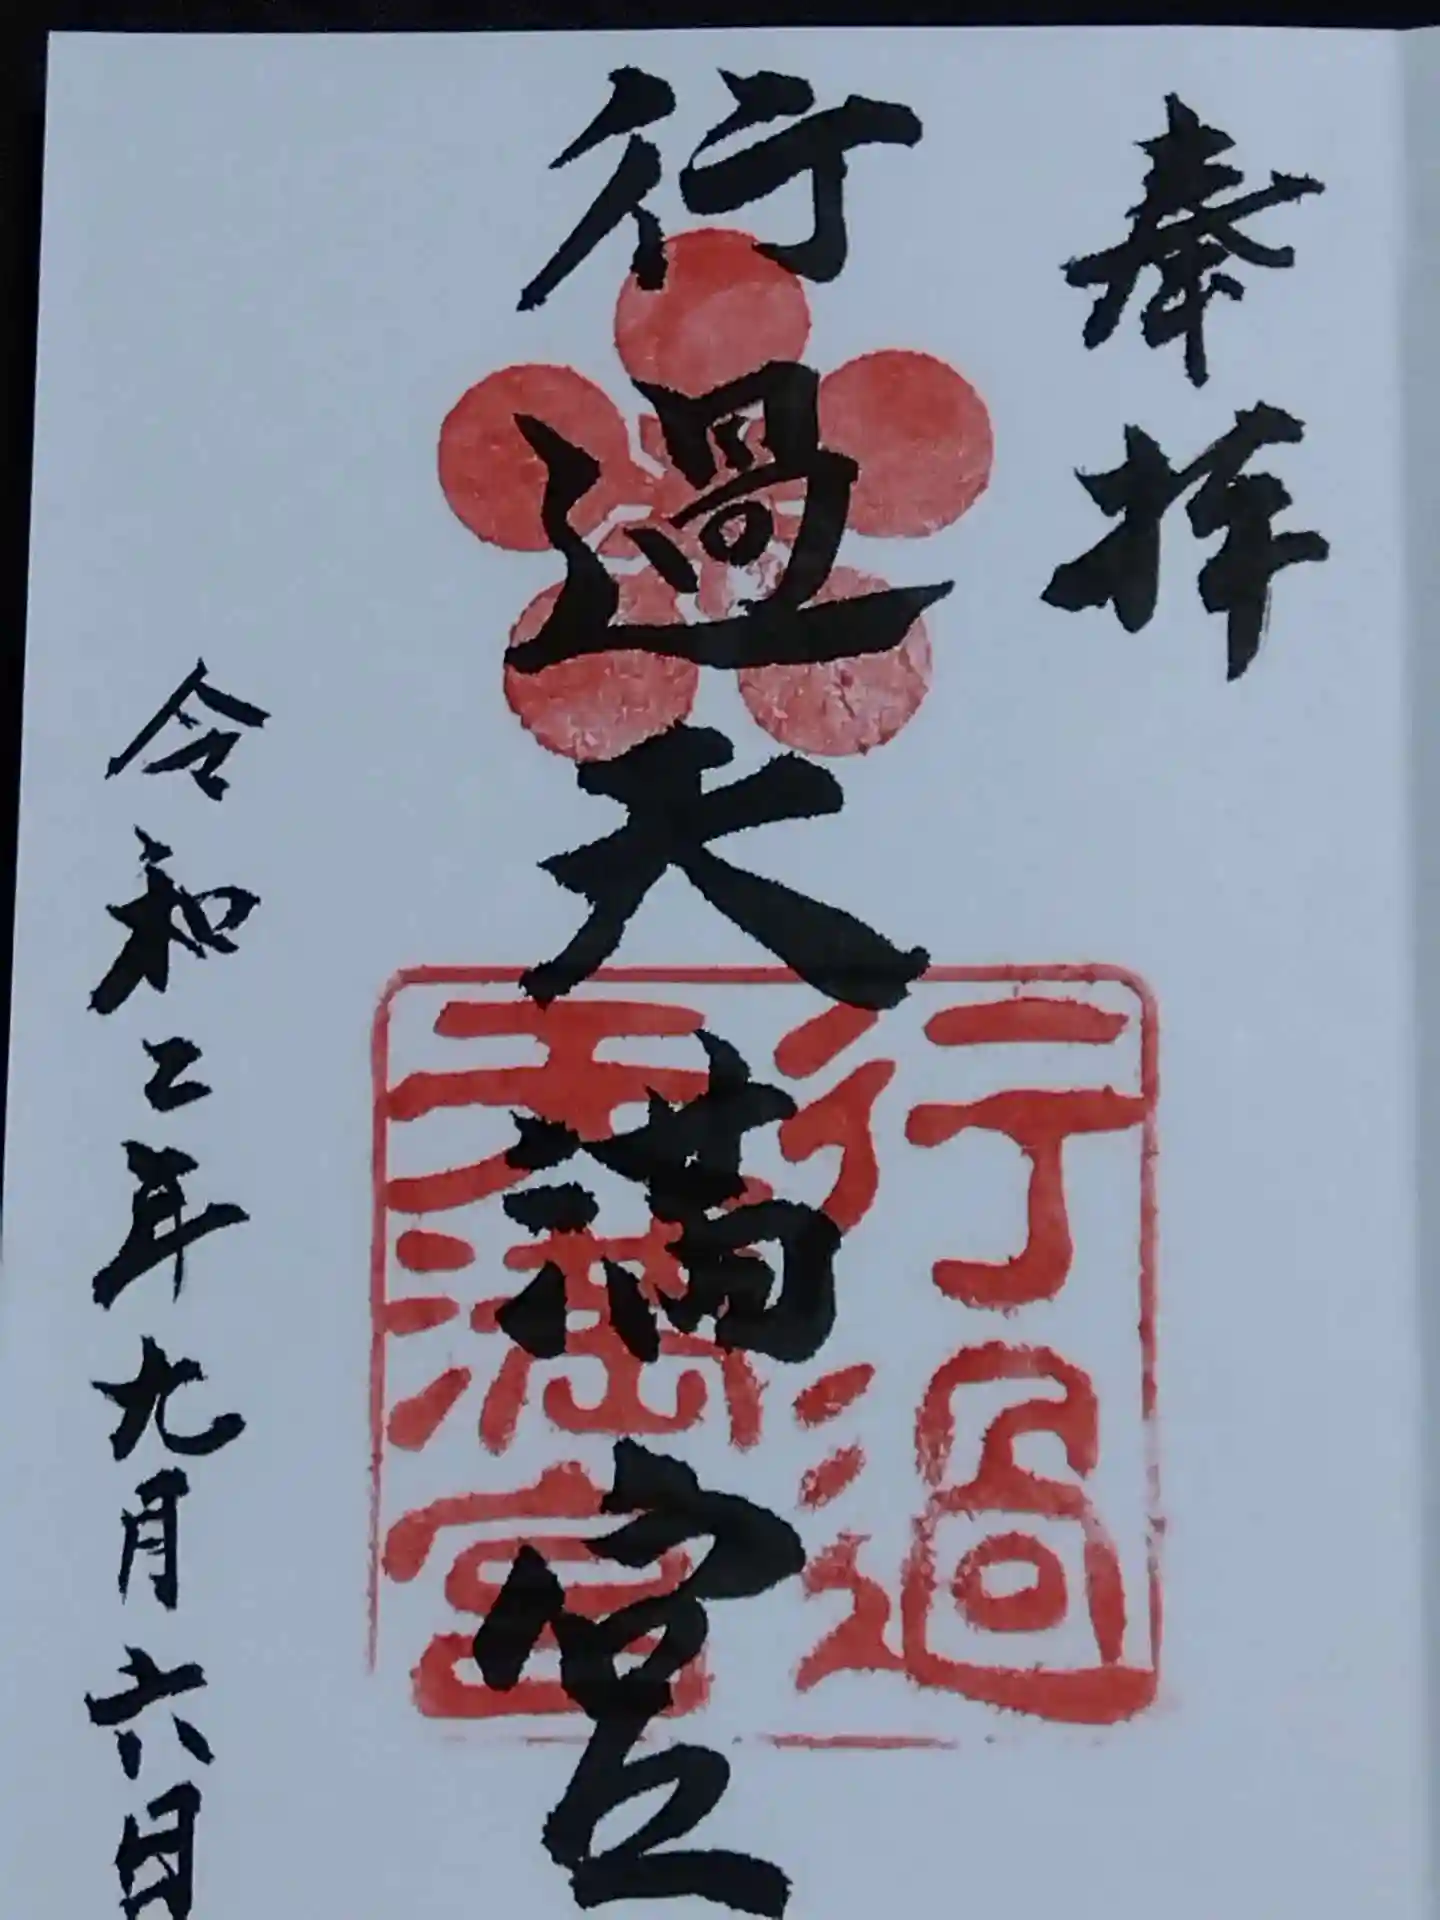 奉拝
行過天満宮
行過
天満宮
令和二年九月六日